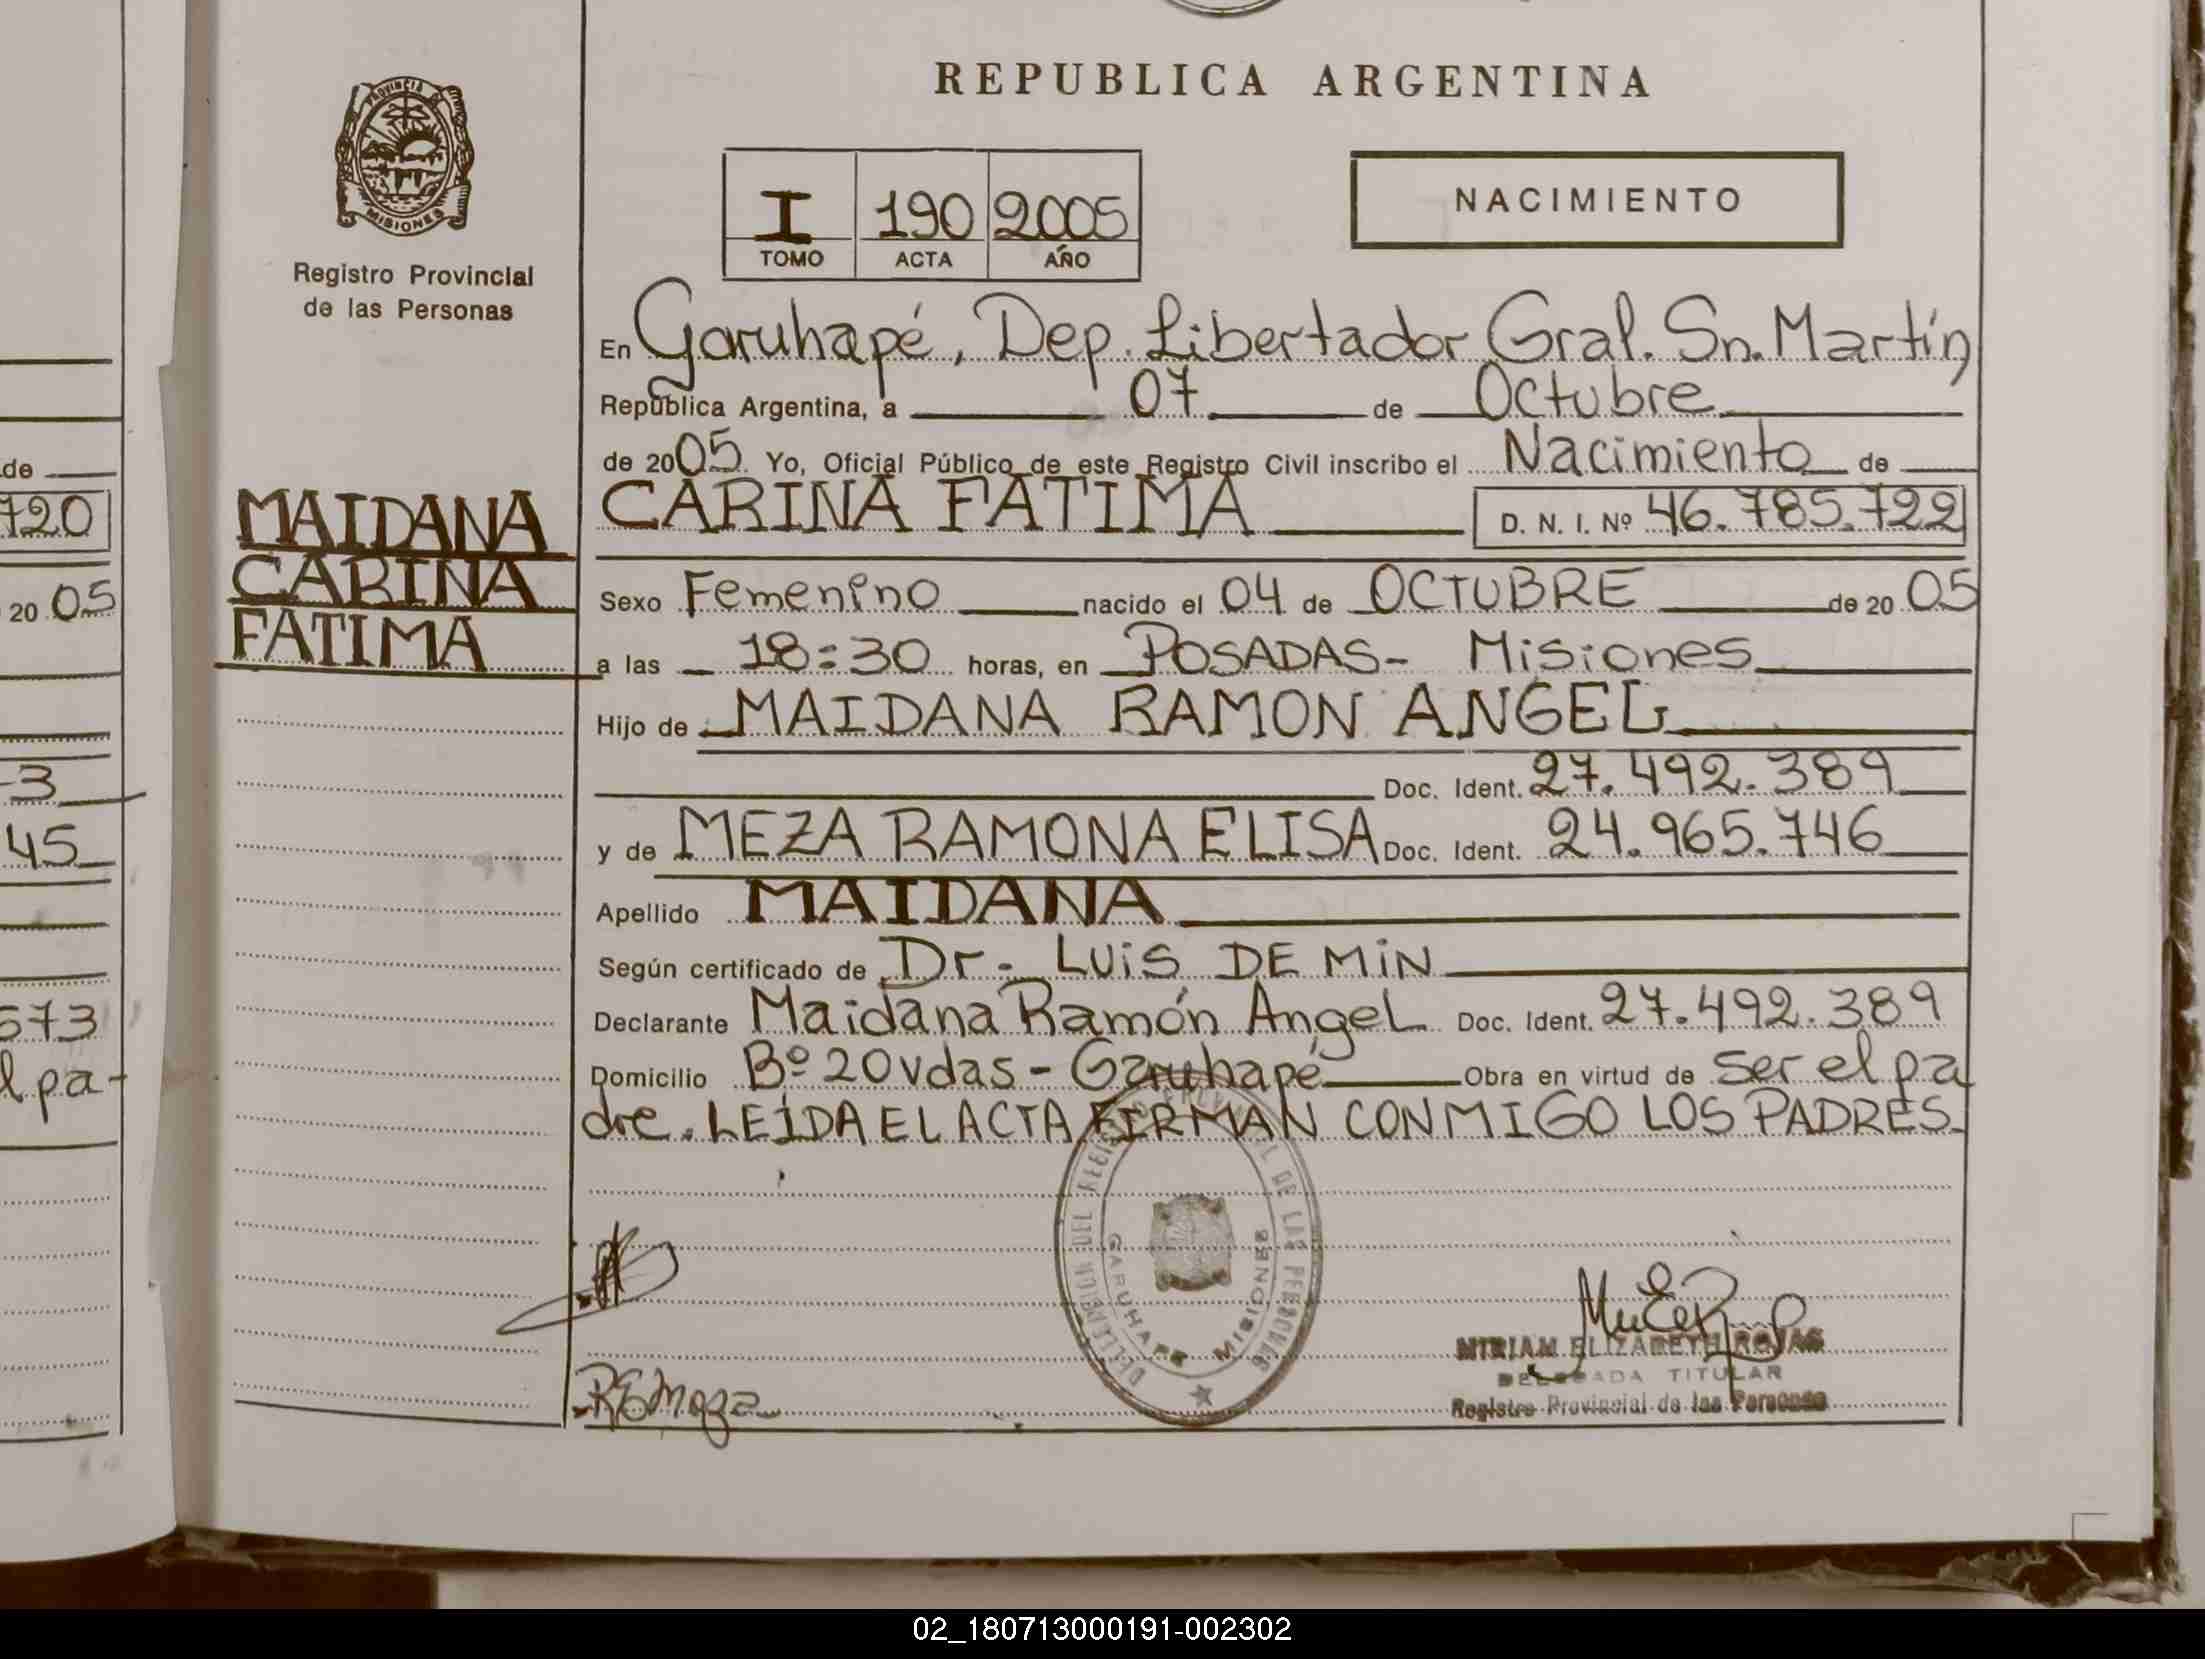 REPUBLICA ARGENTINA
PROVINCIA DE
MISIONES
Registro Provincial
de las Personas
I 190 2005
TOMO ACTA AÑO
NACIMIENTO
En Garuhapé, Dep. Libertador Gral. Sn. Martín
República Argentina, a 07 de Octubre
de 2005 Yo, Oficial Público de este Registro Civil inscribo el Nacimiento de
CARINA FATIMA D. N. I. Nº 46.785.722
MAIDANA
CARINA
FATIMA
Sexo Femenino nacido el 04 de OCTUBRE de 2005
a las 18:30 horas, en POSADAS- Misiones
Hijo de MAIDANA RAMON ANGEL
Doc. Ident. 27.492.389
y de MEZA RAMONA ELISA Doc. Ident. 24.965.746
Apellido MAIDANA
Según certificado de Dr- LUiS DE MiN
Declarante Maidana Ramón Angel Doc. Ident. 27.492.389
Domicilio Bº 20 vdas - Garuhapé Obra en virtud de ser el pa
dre. LEIDA EL ACTA FIRMAN CONMIGO LOS PADRES.
DELEGACION DEL REGISTRO PROVINCIAL DE LAS PERSONAS
GARUHAPE MISIONES
REMeza
MIRIAM ELIZABETH ROJAS
DELEGADA TITULAR
Registro Provincial de las Personas
de
720
20 05
3
45
573
l pa-
02_180713000191-002302